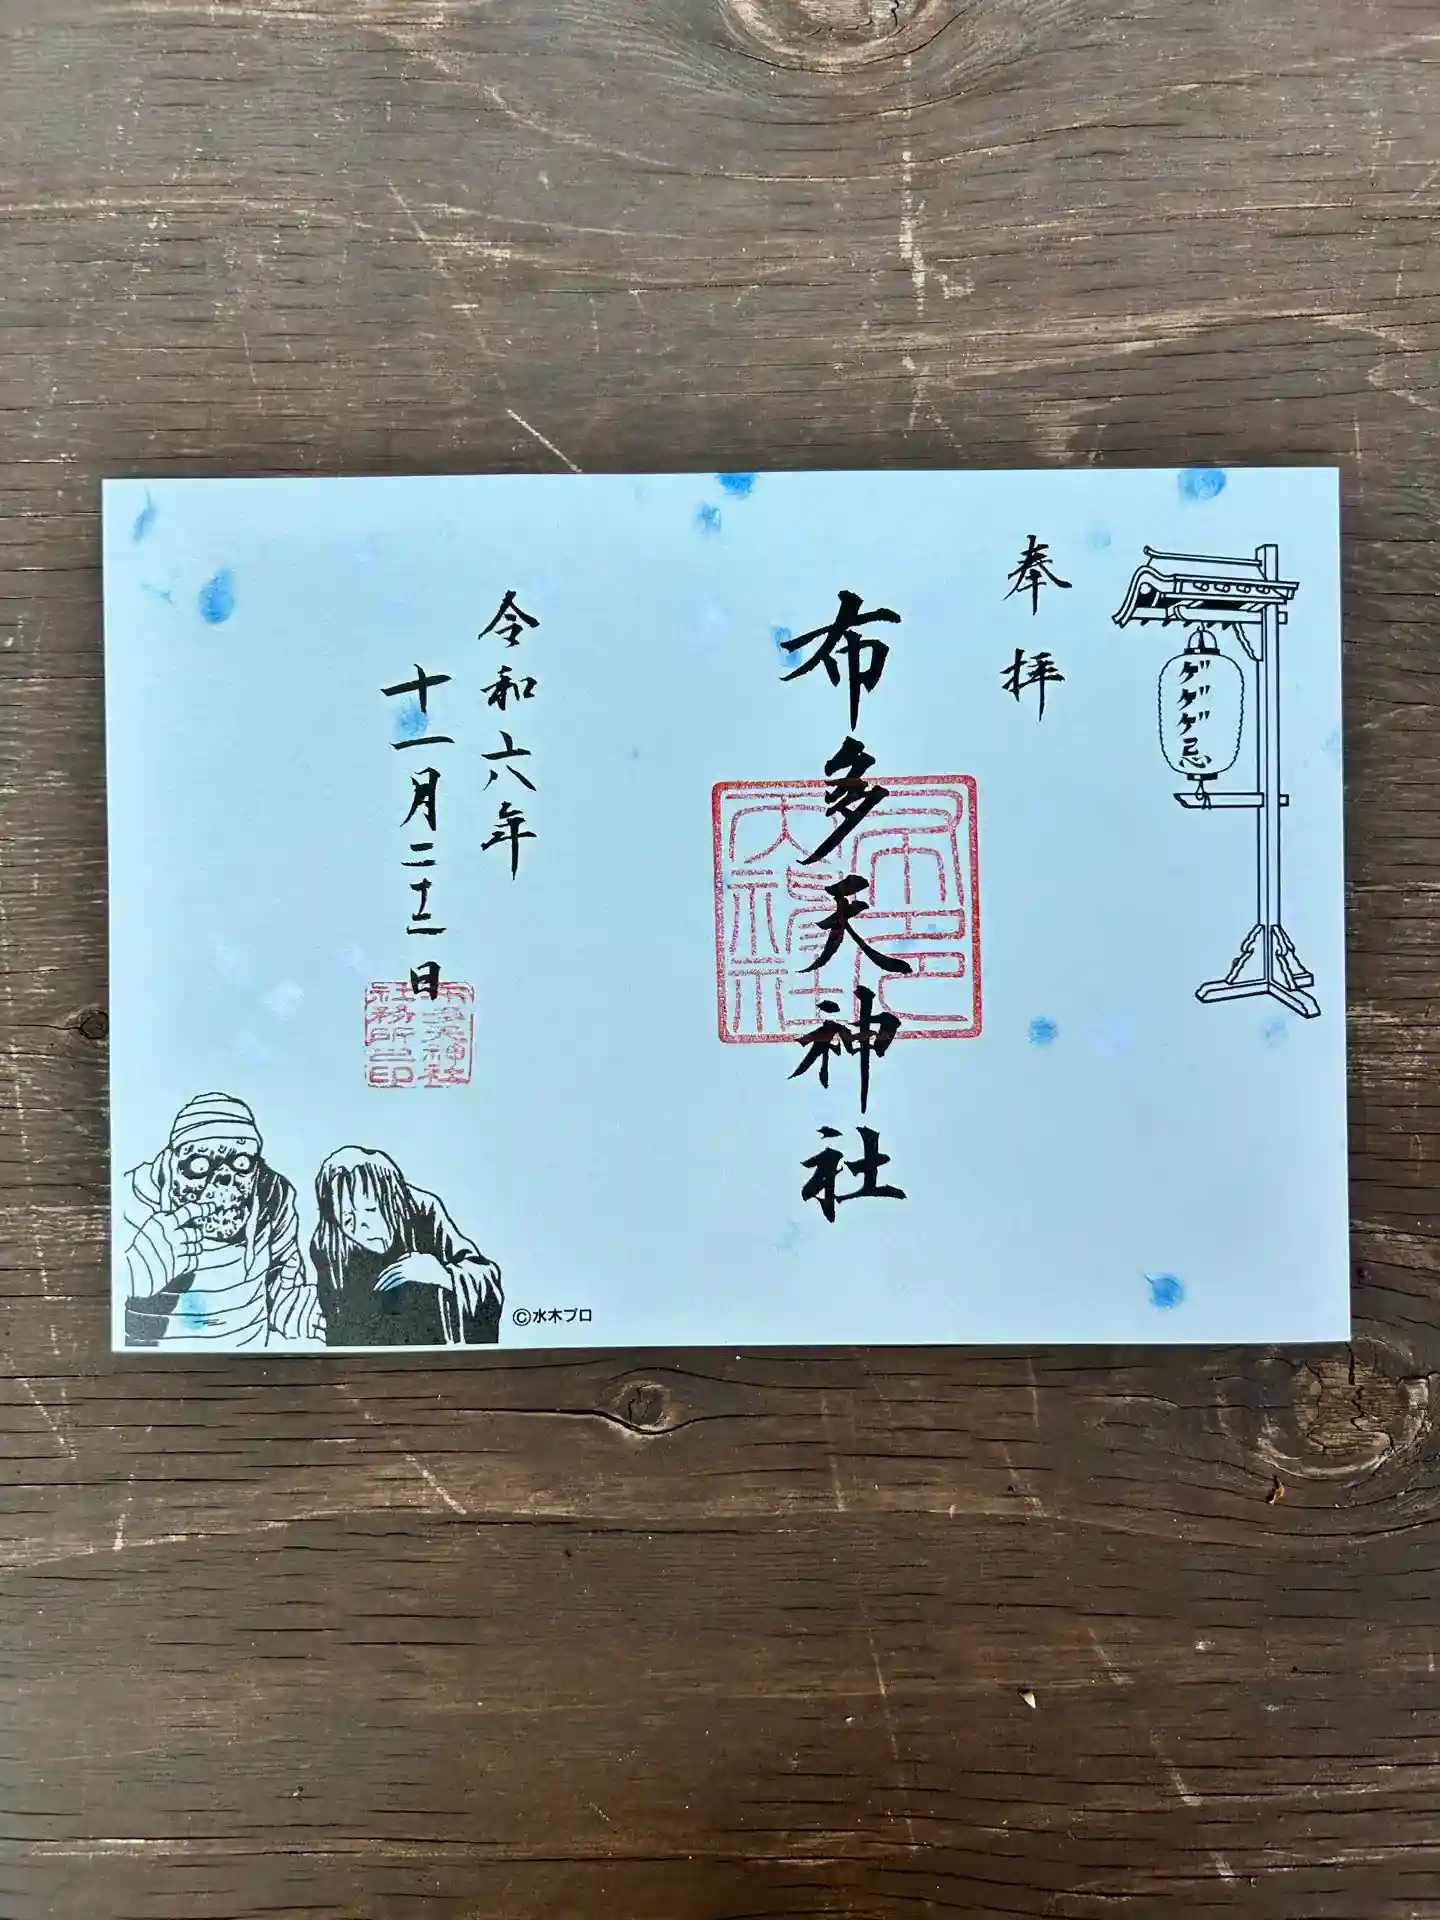 奉拝
ゲゲゲ忌
布多天神社
布多天神社
令和六年
十一月二十二日
布多天神社
社務所之印
©水木プロ